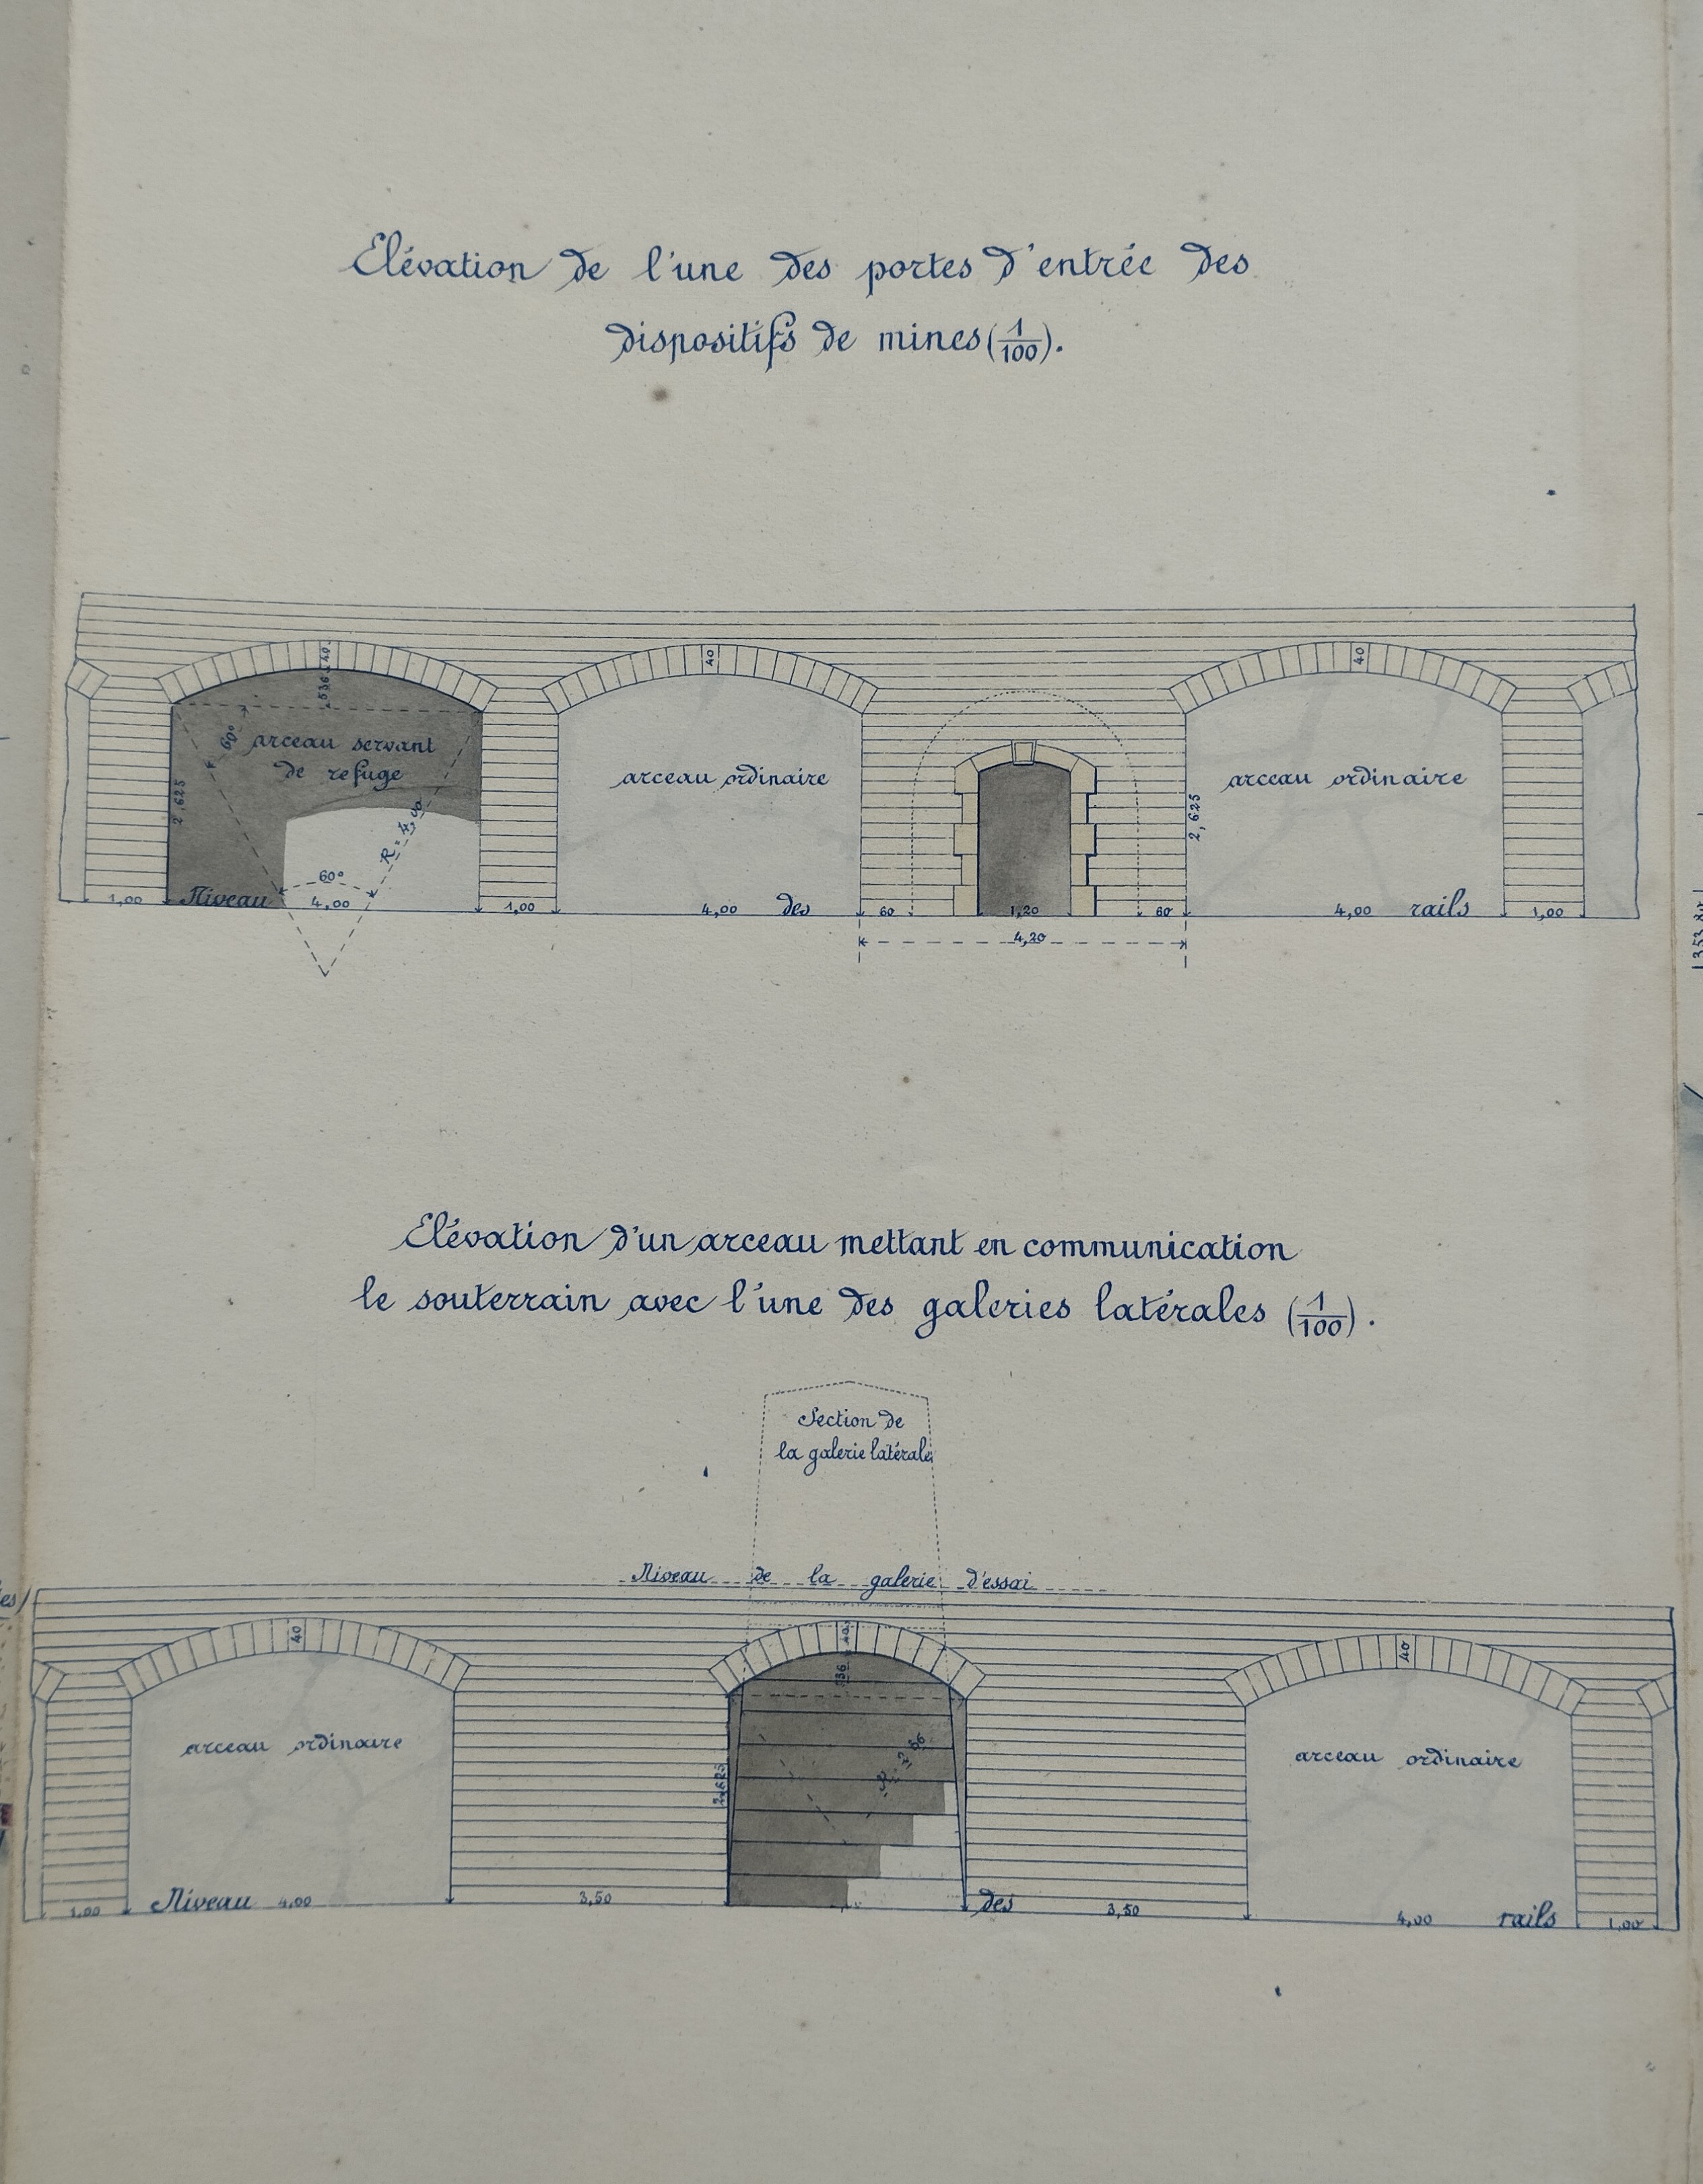 Elévation de l'une des portes d'entrée des
dispositifs de mines (1/100).
40
536
40
40
60°
arceau servant
de refuge
arceau ordinaire
arceau ordinaire
2,625
2,625
R = 4,00
60°
1,00 Niveau 4,00 1,00 4,00 des 60 1,20 60 4,00 rails 1,00
4,20
Elévation d'un arceau mettant en communication
le souterrain avec l'une des galeries latérales (1/100).
Section de
la galerie latérale
Niveau de la galerie d'essai
40
40
40
536
arceau ordinaire
arceau ordinaire
2,625
1,00 Niveau 4,00 3,50 des 3,50 4,00 rails 1,00